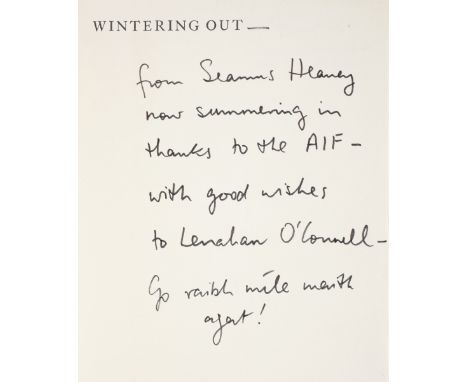 WINTERING OUT —
from Seamus Heaney
now summering in
thanks to the AIF —
with good wishes
to Lenahan O'Connell —
Go raibh míle maith
agat!